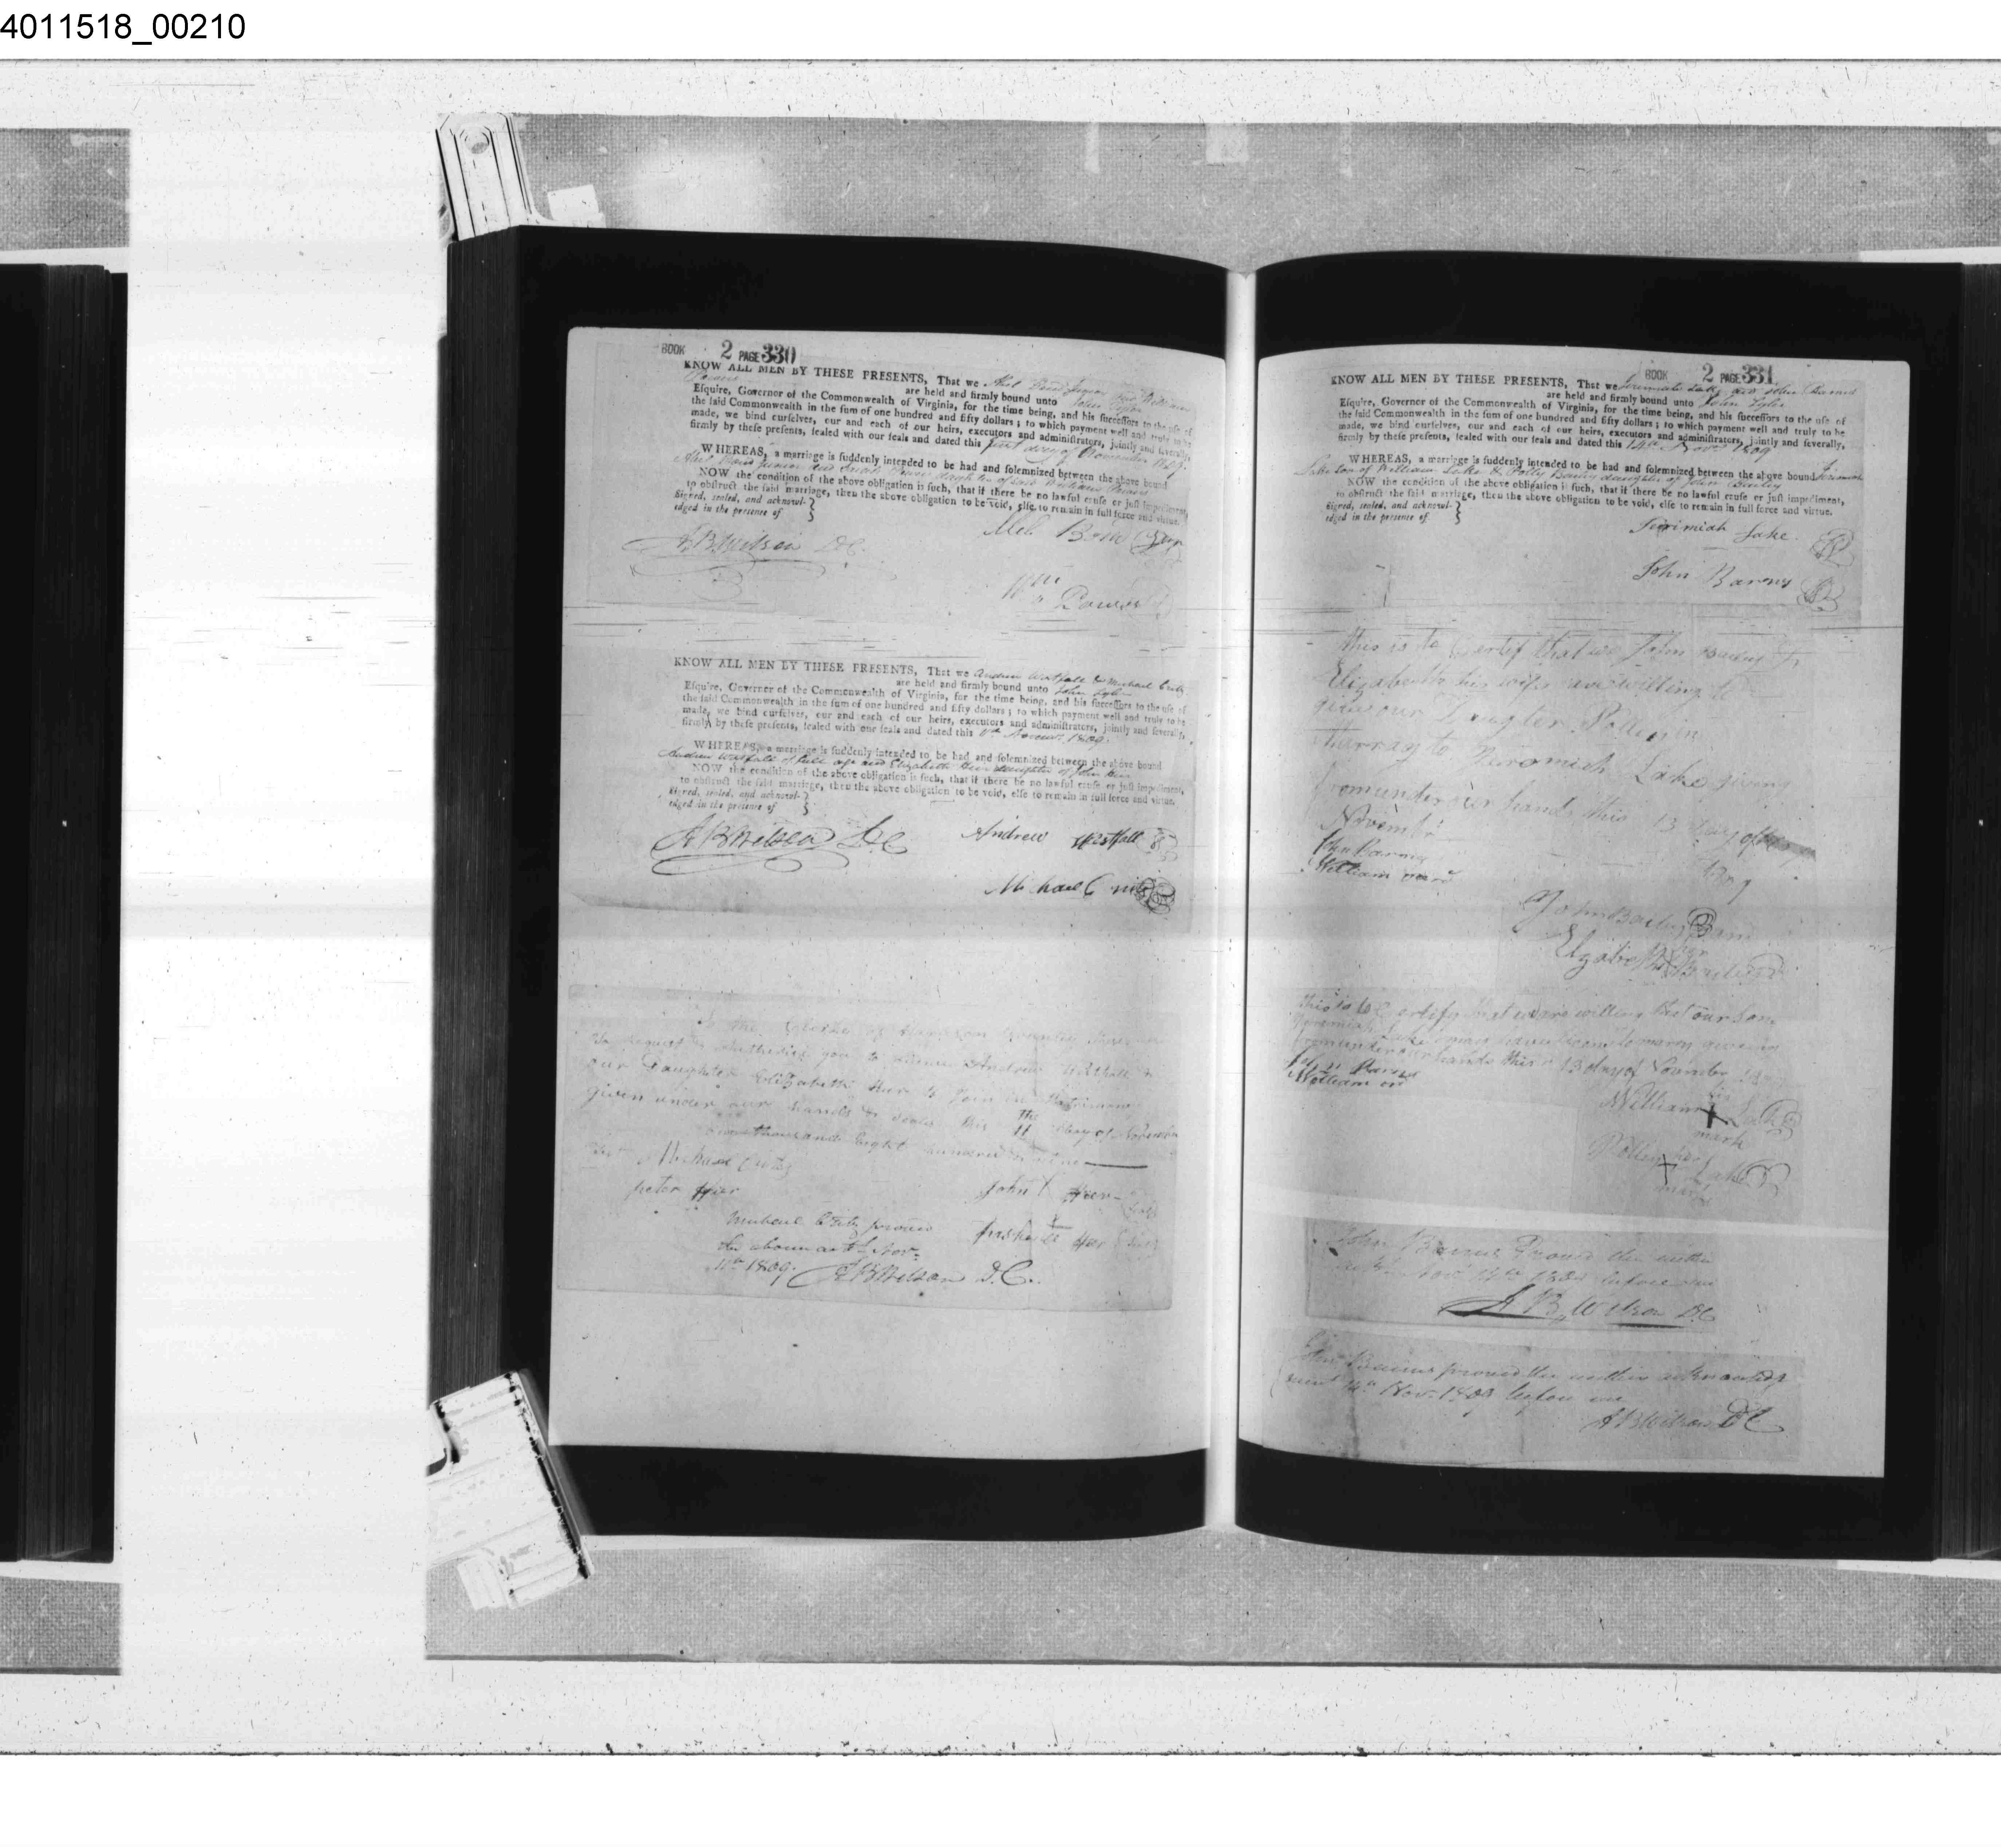 4011518_00210
BOOK 2 PAGE 330
KNOW ALL MEN BY THESE PRESENTS, That we Abel Bond Junior and William
Powers are held and firmly bound unto John Tyler
Esquire, Governor of the Commonwealth of Virginia, for the time being, and his successors to the use of
the said Commonwealth in the sum of one hundred and fifty dollars; to which payment well and truly to be
made, we bind ourselves, our and each of our heirs, executors and administrators, jointly and severally,
firmly by these presents, sealed with our seals and dated this first day of November 1809.
WHEREAS, a marriage is suddenly intended to be had and solemnized between the above bound
Abel Bond Junior and Sarah Powers daughter of said William Powers
NOW the condition of the above obligation is such, that if there be no lawful cause or just impediment,
to obstruct the said marriage, then the above obligation to be void, else to remain in full force and virtue.
Signed, sealed, and acknowl-
edged in the presence of
A B Wilson D.C.
Abel Bond Jun
Wm Powers
KNOW ALL MEN BY THESE PRESENTS, That we Andrew Westfall & Michael Crites
are held and firmly bound unto John Tyler
Esquire, Governer of the Commonwealth of Virginia, for the time being, and his successors to the use of
the said Commonwealth in the sum of one hundred and fifty dollars; to which payment well and truly to be
made, we bind ourselves, our and each of our heirs, executors and administrators, jointly and severally,
firmly by these presents, sealed with our seals and dated this 11th November 1809.
WHEREAS, a marriage is suddenly intended to be had and solemnized between the above bound
Andrew Westfall of full age and Elizabeth Hur daughter of John Hur
NOW the condition of the above obligation is such, that if there be no lawful cause or just impediment,
to obstruct the said marriage, then the above obligation to be void, else to remain in full force and virtue.
Signed, sealed, and acknowl-
edged in the presence of
A B Wilson D.C
Andrew Westfall
Michael
To the Clerke of Harrison County
To request & Authorise you to Andrew Westfall &
our Daughter Elizabeth Hur to Join in Matrimony
given under our hands & seals this 11 The day of November
one thousand Eight hundred & nine
Michael
peter Hur
John Hur
Michael proved
the above act Nov
11th 1809. A B Wilson D.C.
BOOK 2 PAGE 331
KNOW ALL MEN BY THESE PRESENTS, That we Jeremiah Lake and John
are held and firmly bound unto John Tyler
Esquire, Governor of the Commonwealth of Virginia, for the time being, and his successors to the use of
the said Commonwealth in the sum of one hundred and fifty dollars; to which payment well and truly to be
made, we bind ourselves, our and each of our heirs, executors and administrators, jointly and severally,
firmly by these presents, sealed with our seals and dated this 14th Novr 1809
WHEREAS, a marriage is suddenly intended to be had and solemnized between the above bound Jeremiah
Lake son of William Lake & Polly Bailey daughter of John Bailey
NOW the condition of the above obligation is such, that if there be no lawful cause or just impediment,
to obstruct the said marriage, then the above obligation to be void, else to remain in full force and virtue.
Signed, sealed, and acknowl-
edged in the presence of
Jerimiah Lake
John Barnes
this is to Certif that we John Bailey &
Elizabeth his wife are willing to
give our Daugter Polley in
Marrag to Jeromiah Lake giving
from under our hands this 13 day of
November
John
William
1809
John Bailey
Elizabeth
this is to Certify that we are willing that our Son
Jeremiah Lake may have licens to marry given
from under our hands this 13 day of November
John
William
William his
mark
Polley her Lake
mark
John Barnes Proved the within
Novr 14th 1809 before me
A B Wilson D.C
John Barnes proved the within
14th Nov. 1809 before me
A B Wilson D C